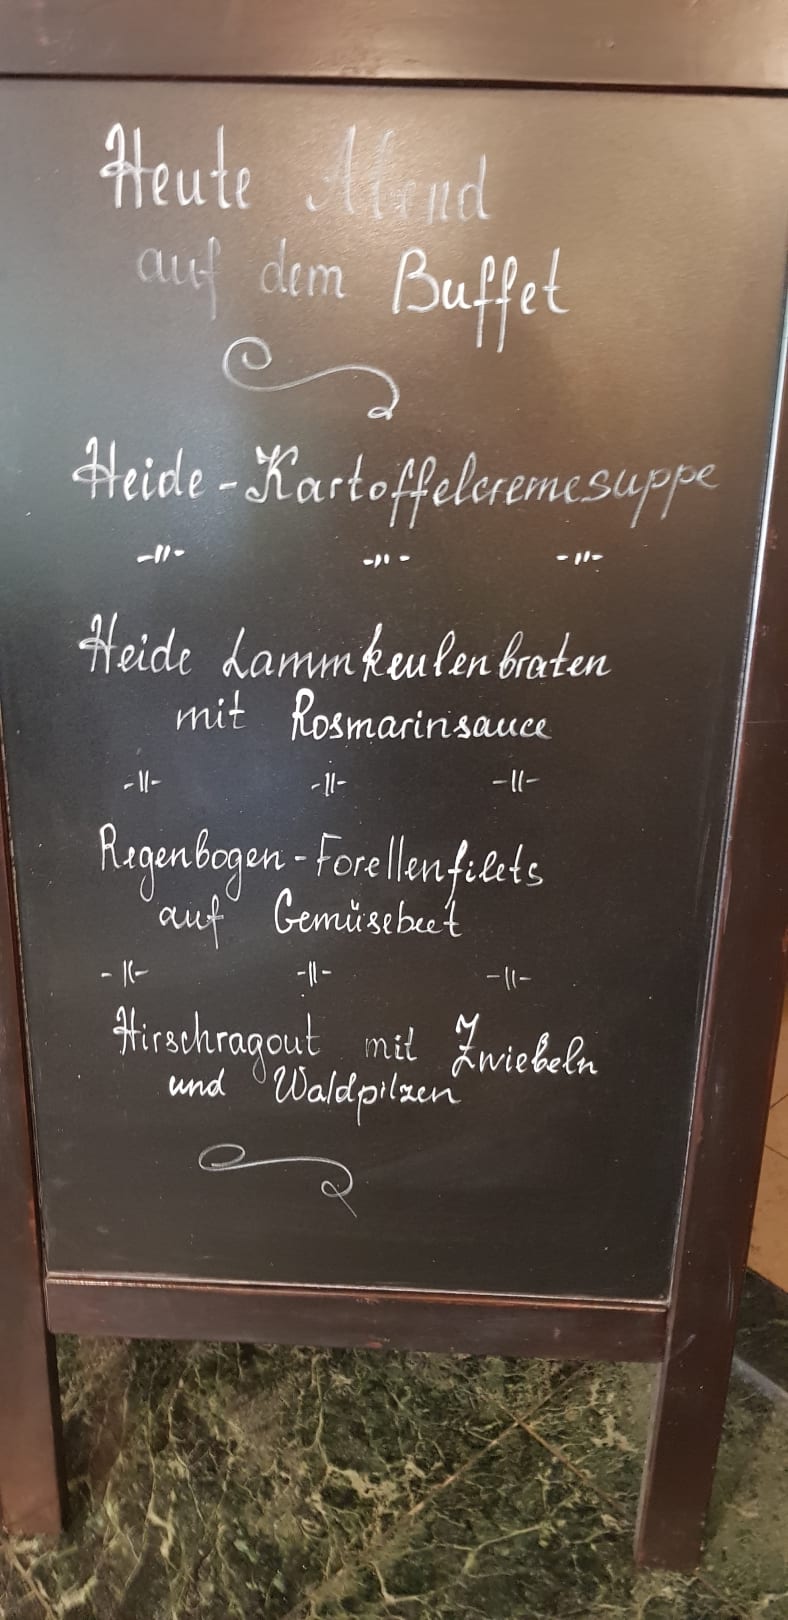 Heute Abend
auf dem Buffet
Heide-Kartoffelcremesuppe
-"- -"- -"-
Heide Lammkeulenbraten
mit Rosmarinsauce
-"- -"- -"-
Regenbogen-Forellenfilets
auf Gemüsebeet
-"- -"- -"-
Hirschragout mit Zwiebeln
und Waldpilzen